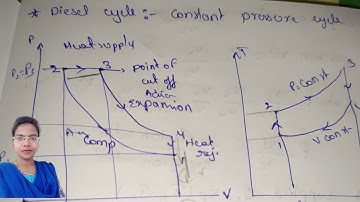 * Diesel cycle :- constant pressure cycle
P
Heat supply
P2=P3
2
3
point of
cut off
Adia
EXpansion
Comp
4
Heat
rej.
V
T
3
P=Const
2
4
V const
1